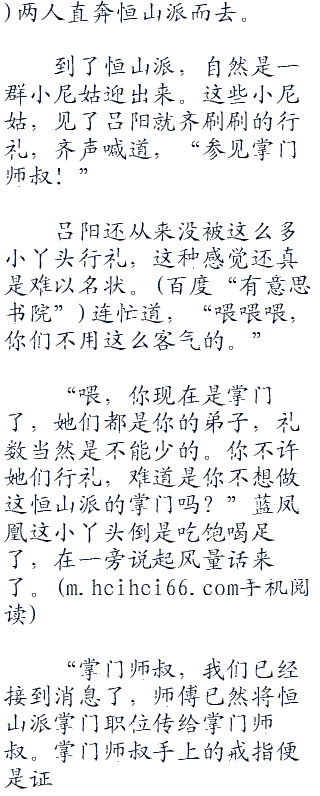 )两人直奔恒山派而去。
到了恒山派，自然是一
群小尼姑迎出来。这些小尼
姑，见了吕阳就齐刷刷的行
礼，齐声喊道，“参见掌门
师叔！”
吕阳还从来没被这么多
小丫头行礼，这种感觉还真
是难以名状。(百度“有意思
书院”)连忙道，“喂喂喂，
你们不用这么客气的。”
“喂，你现在是掌门
了，她们都是你的弟子，礼
数当然是不能少的。你不许
她们行礼，难道是你不想做
这恒山派的掌门吗？”蓝凤
凰这小丫头倒是吃饱喝足
了，在一旁说起风量话来
了。(m.hcihci66.com手机阅
读)
“掌门师叔，我们已经
接到消息了，师傅已然将恒
山派掌门职位传给掌门师
叔。掌门师叔手上的戒指便
是证